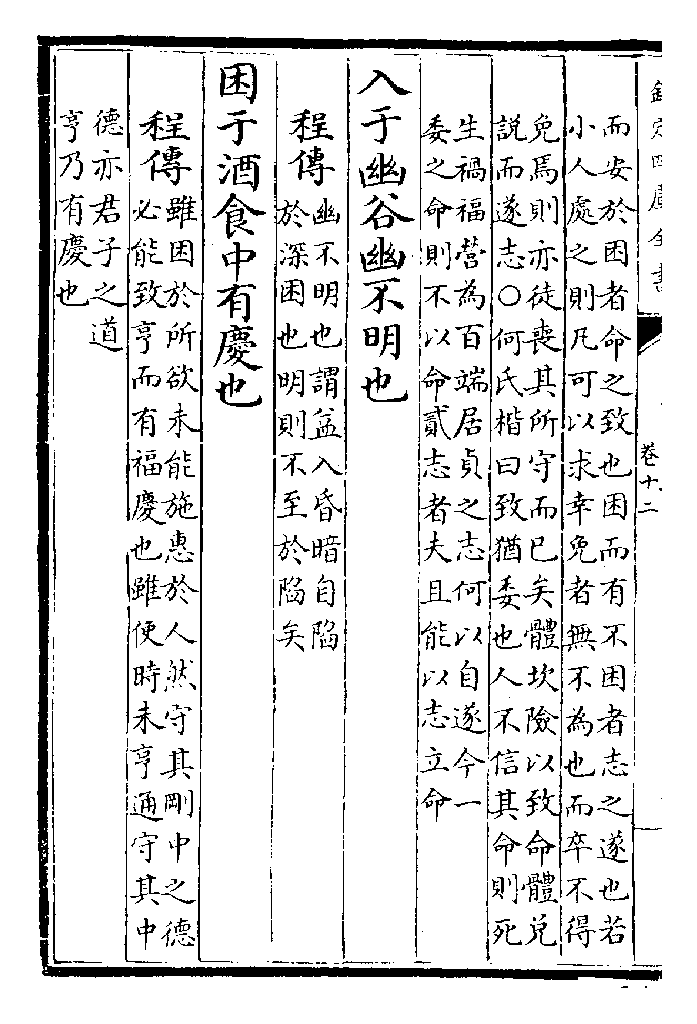 欽定四庫全書
卷十二
而安於困者命之致也困而有不困者志之遂也若
小人處之則凡可以求幸免者無不為也而卒不得
免焉則亦徒喪其所守而已矣體坎險以致命體兌
說而遂志○何氏楷曰致猶委也人不信其命則死
生禍福營為百端居貞之志何以自遂今一
委之命則不以命貳志者夫且能以志立命
入于幽谷幽不明也
程傳
幽不明也謂益入昏暗自陷
於深困也明則不至於陷矣
困于酒食中有慶也
程傳
雖困於所欲未能施惠於人然守其剛中之德
必能致亨而有福慶也雖使時未亨通守其中
德亦君子之道
亨乃有慶也